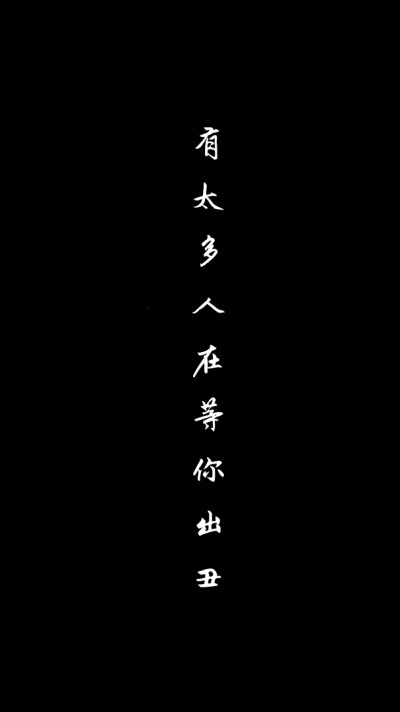 有太多人在等你出丑